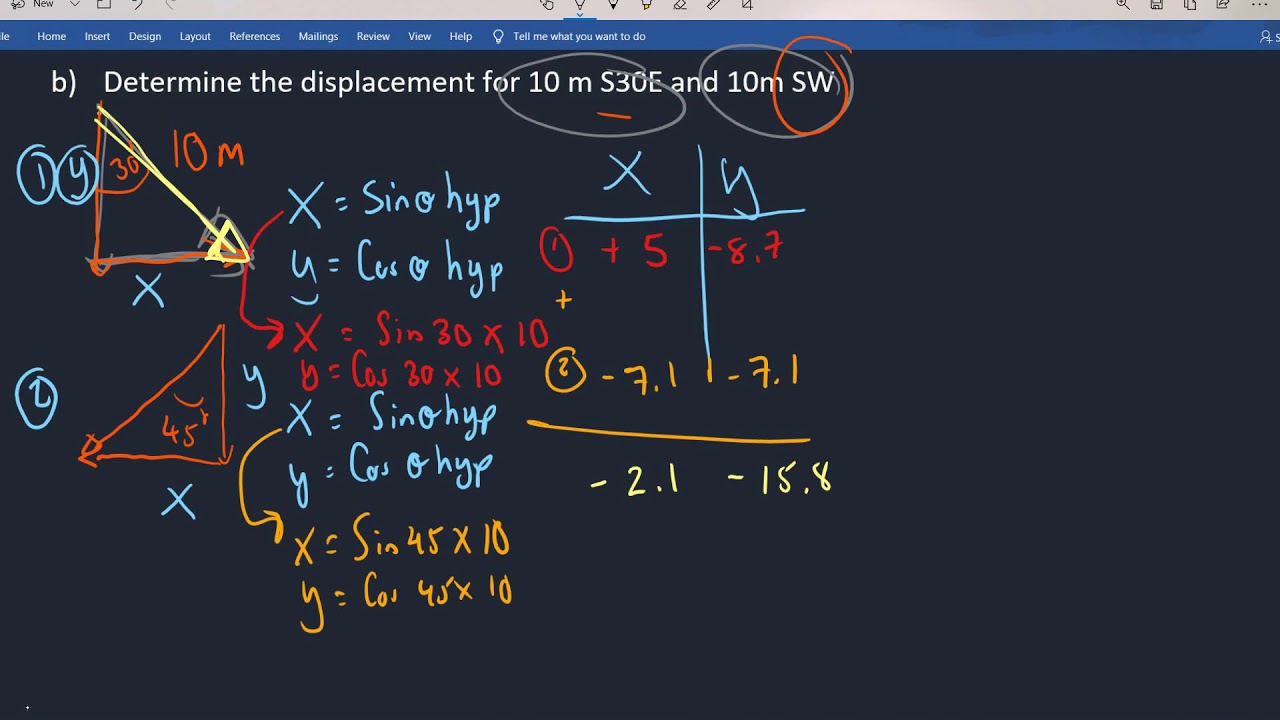 New
le Home Insert Design Layout References Mailings Review View Help Tell me what you want to do S
b) Determine the displacement for 10 m S30E and 10m SW
① y 30 10 m
X
X = Sinθ hyp
y = Cos θ hyp
X = Sin 30 x 10
y = Cos 30 x 10
② 45° y
X
X = Sinθ hyp
y = Cos θ hyp
X = Sin 45 x 10
y = Cos 45 x 10
X y
① + 5 -8.7
+
② -7.1 -7.1
-2.1 -15.8